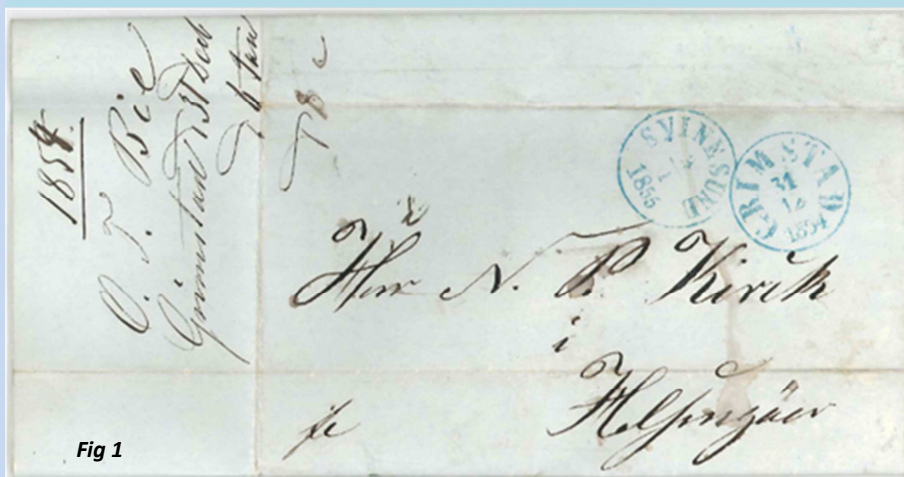 1854.
O. T. Bie
Grimstad 31 Dect
SVINESUND
1855
GRIMSTAD
31
12
1854
Herr N. P. Kirck
i
Helsingöer
Fig 1